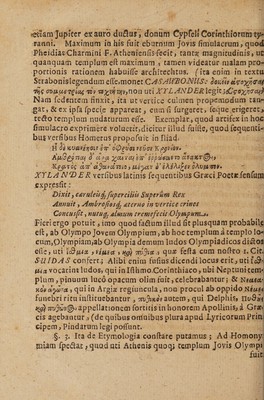 etiam Jupiter ex auro ductus, donum Cypseli Corinthiorum ty-
ranni. Maximum in his fuit eburnum Jovis simulacrum, quod
Pheidias Charmini F. Atheniensis fecit, tantæ magnitudinis, ut
quanquam templum est maximum, tamen videatur malam pro-
portionis rationem habuisse architectus. (ita enim in textu
Strabonis legendum esse monet CASAUBONUS:
non uti XYLANDER legit;
Nam sedentem finxit, ita ut vertice culmen propemodum tan-
gat, & ex ipsa specie appareat, eum si surgeret, sese erigeret,
tecto templum nudaturum esse. Exemplar, quod artifex in hoc
simulacro exprimere voluerit, dicitur illud fuisse, quod sequenti-
bus versibus Homerus proposuit in Iliad.
XYLANDER versibus latinis sequentibus Græci Poetæ sensum
expressit:
Dixit, cæruleisq; superciliis Superûm Rex
Annuit, Ambrosiæq; comæ in vertice crines
Concussit, nutuq; almum tremefecit Olympum.
Fierique potuit, imo quod factum illud sit plusquam probabile
est, ab Olympo Jovem Olympium, ab hoc templum à templo lo-
cum, Olympiam, ab Olympia demum ludos Olympiadicos dictos
esse, uti quæ festa cum nostro s. Cit.
SUIDAS confert; Alibi enim fusius dicendi locus erit, uti
vocarint ludos, qui in Isthmo Corinthiaco, ubi Neptuni tem-
plum, pinuum lucô opacum olim fuit, celebrabantur; &
qui in Argiæ regiuncula, non procul ab oppido
funebri ritu instituebantur, autem qui Delphis,
appellationem sortitis in honorem Apollinis, à Græ-
cis agebantur, (de quibus omnibus plura apud Lyricorum Prin-
cipem, Pindarum legi possunt.
§. 3. Ita de Etymologia constare putamus; Ad Homony-
miam spectat, quod uti Athenis quoq; templum Jovis Olympi
fuit